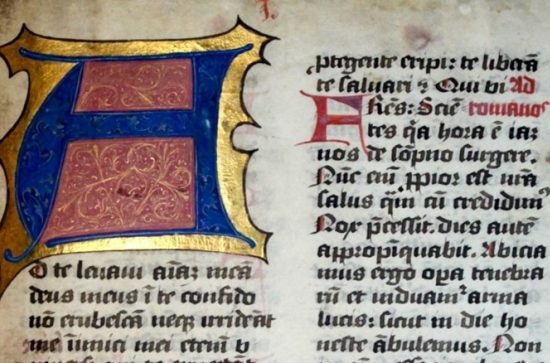 A
D te leuaui aĩaz meã
deus meus ĩ te confido
nõ erubescã neqz irrideãt
me ĩimici mei etenĩ v
ꝓtegente eripi: te liberã
te saluari Qui vi Ad
Fr̃es: Sciẽ romanos
tes qa hora ẽ iaz
nos de sõpno surgere.
Nũc em̃ ꝓpior est nr̃a
salus qm̃ cũ credidimꝰ
Nox p̃cessit. dies autẽ
appropĩquabit. Abicia
mus ergo oꝑa tenebra
rũ et induamꝰ arma
lucis: sicut in die ho
neste ãbulemus. Non